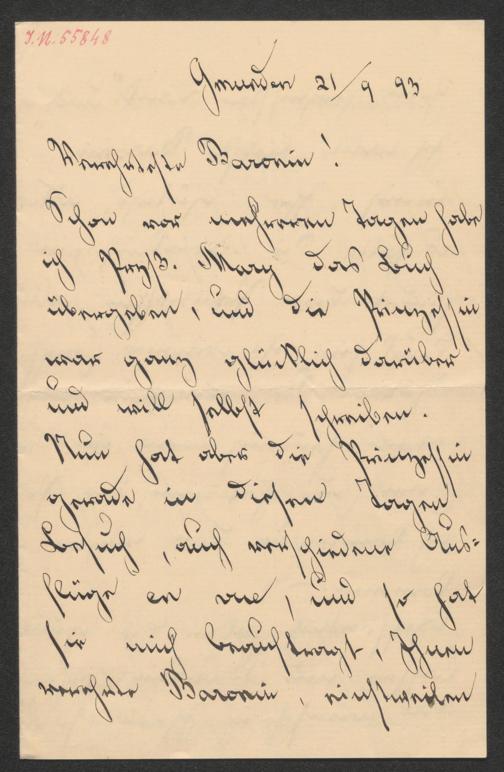 I.N. 55848
Gmunden 21/9 93
Verehrteste Baronin!
Schon vor mehreren Tagen habe
ich Przß. Mary das Buch
übergeben, und die Prinzessin
war ganz glücklich darüber
und will selbst schreiben.
Nun hat aber die Prinzessin
gerade in diesen Tagen
Besuch, auch verschiedene Aus=
flüge en vue, und so hat
sie mich beauftragt, Ihnen
verehrte Baronin, einstweilen